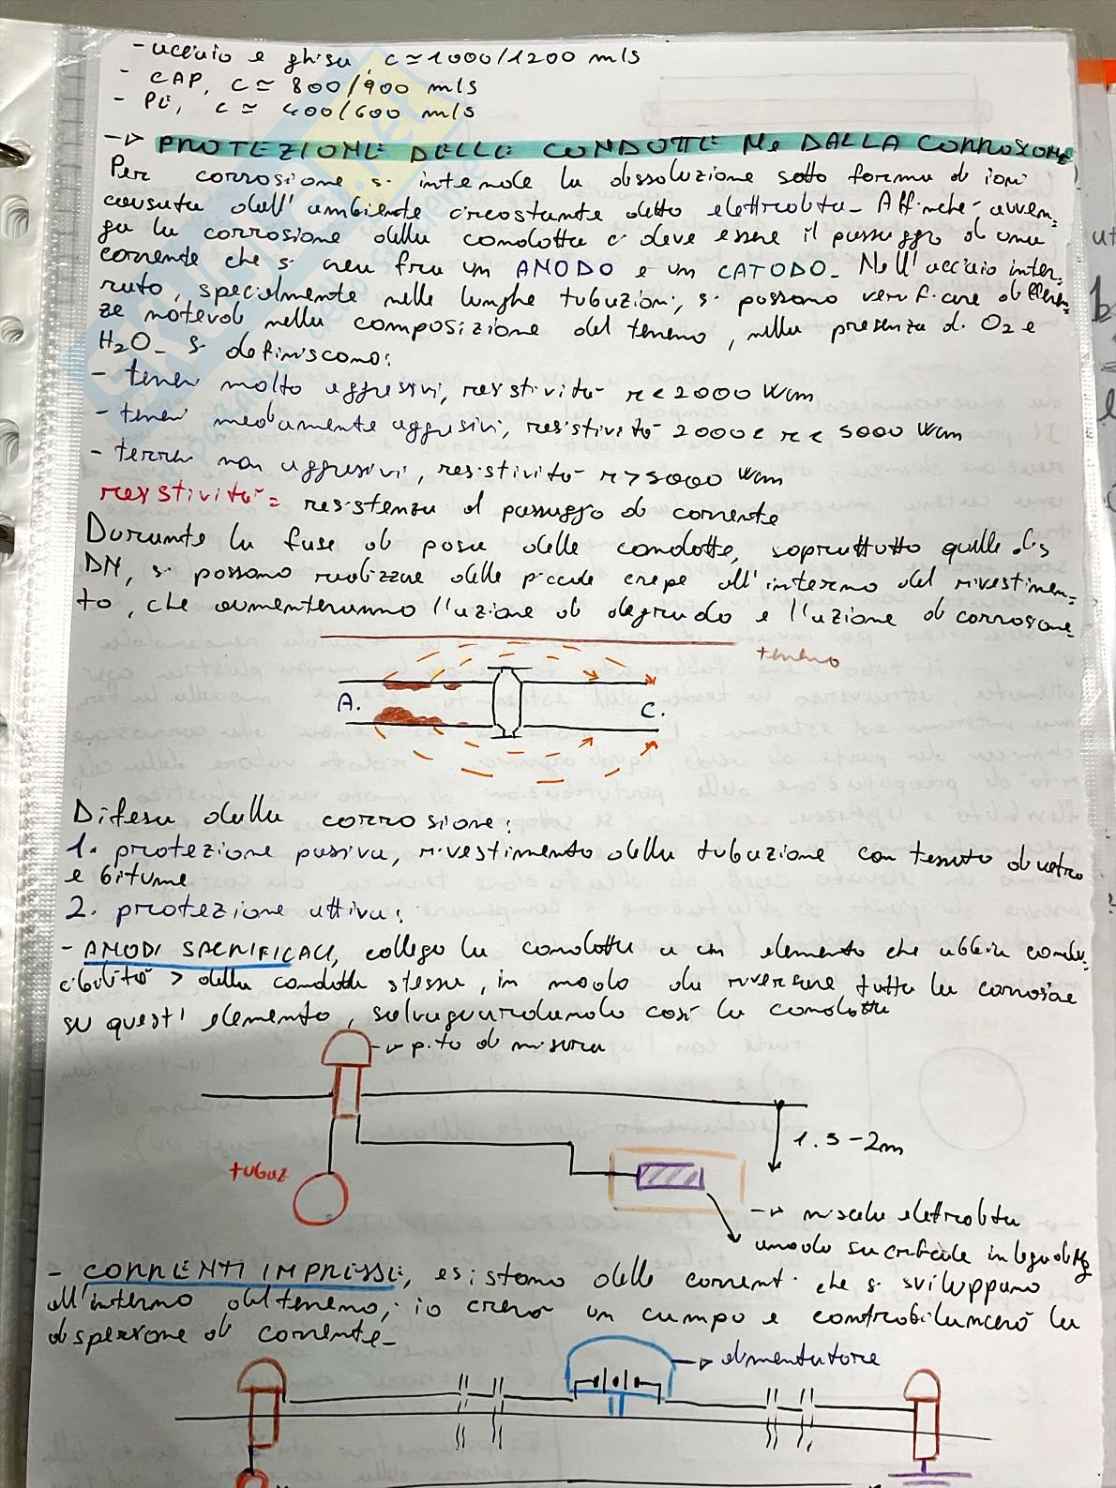 - acciaio e ghisa, c ≃ 1000/1200 m/s
- CAP, c ≃ 800/900 m/s
- PE, c ≃ 400/600 m/s
-> PROTEZIONE DELLE CONDOTTE Me DALLA CORROSIONE
Per corrosione si intende la dissoluzione sotto forma di ioni
causata dall'ambiente circostante detto elettrolita. Affinché avven=
ga la corrosione della condotta ci deve essere il passaggio di una
corrente che si crea fra un ANODO e un CATODO. Nell'acciaio inter=
rato, specialmente nelle lunghe tubazioni, si possono verificare differen=
ze notevoli nella composizione del terreno, nella presenza di O2 e
H2O. Si definiscono:
- terreni molto aggressivi, resistività r < 2000 Wcm
- terreni mediamente aggressivi, resistività 2000 < r < 5000 Wcm
- terreni non aggressivi, resistività r > 5000 Wcm
resistività = resistenza al passaggio di corrente
Durante la fase di posa delle condotte, soprattutto quelle di >
DN, si possono realizzare delle piccole crepe all'interno del rivestimen=
to, che aumenteranno l'azione di degrado e l'azione di corrosione.
terreno
A.
C.
Difesa dalla corrosione:
1. protezione passiva, rivestimento della tubazione con tessuto di vetro
e bitume
2. protezione attiva:
- ANODI SACRIFICALI, collego la condotta a un elemento che abbia condu=
cibilità > della condotta stessa, in modo da riversare tutta la corrosione
su quest'elemento, salvaguardando così la condotta
-> p.to di misura
1.5-2m
tubaz
-> miscela elettrolita
anodo sacrificale in lega di Mg
- CORRENTI IMPRESSE, esistono delle correnti che si sviluppano
all'interno del terreno, io creerò un campo e controbilancerò la
dispersione di corrente.
-> alimentatore